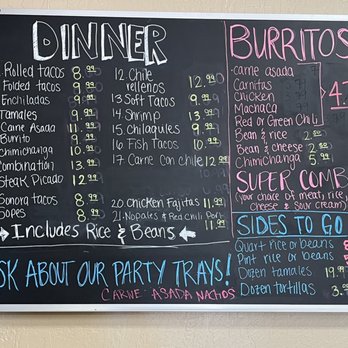 DINNER
Rolled tacos 8.99
Folded tacos 9.99
Enchiladas 9.99
Tamales 9.99
Carne Asada 11.99
Burrito 9.99
Chimichanga 10.99
Combination 13.99
Steak Picado 12.99
Sonora tacos 8.99
Sopes 8.99
12. Chile
rellenos 12.99
13 Soft Tacos 9.99
14 Shrimp 13.99
15. Chilaqules 9.99
16 Fish Tacos 10.99
17 Carne con chile 12.99
20 Chicken Fajitas 11.99
21. Nopales & Red Chili Pork
11.99
Includes Rice & Beans
ASK ABOUT OUR PARTY TRAYS!
CARNE ASADA NACHOS
BURRITOS
carne asada
Carnitas
Chicken
Machaca
Red or Green Chili
4
Bean & rice
Bean & cheese
Chimichanga 5.99
SUPER COMB
(your choice of meat, rice
cheese & sour cream)
SIDES TO GO
Quart rice or beans
Pint rice or beans
Dozen tamales 19.9
Dozen tortillas 3.